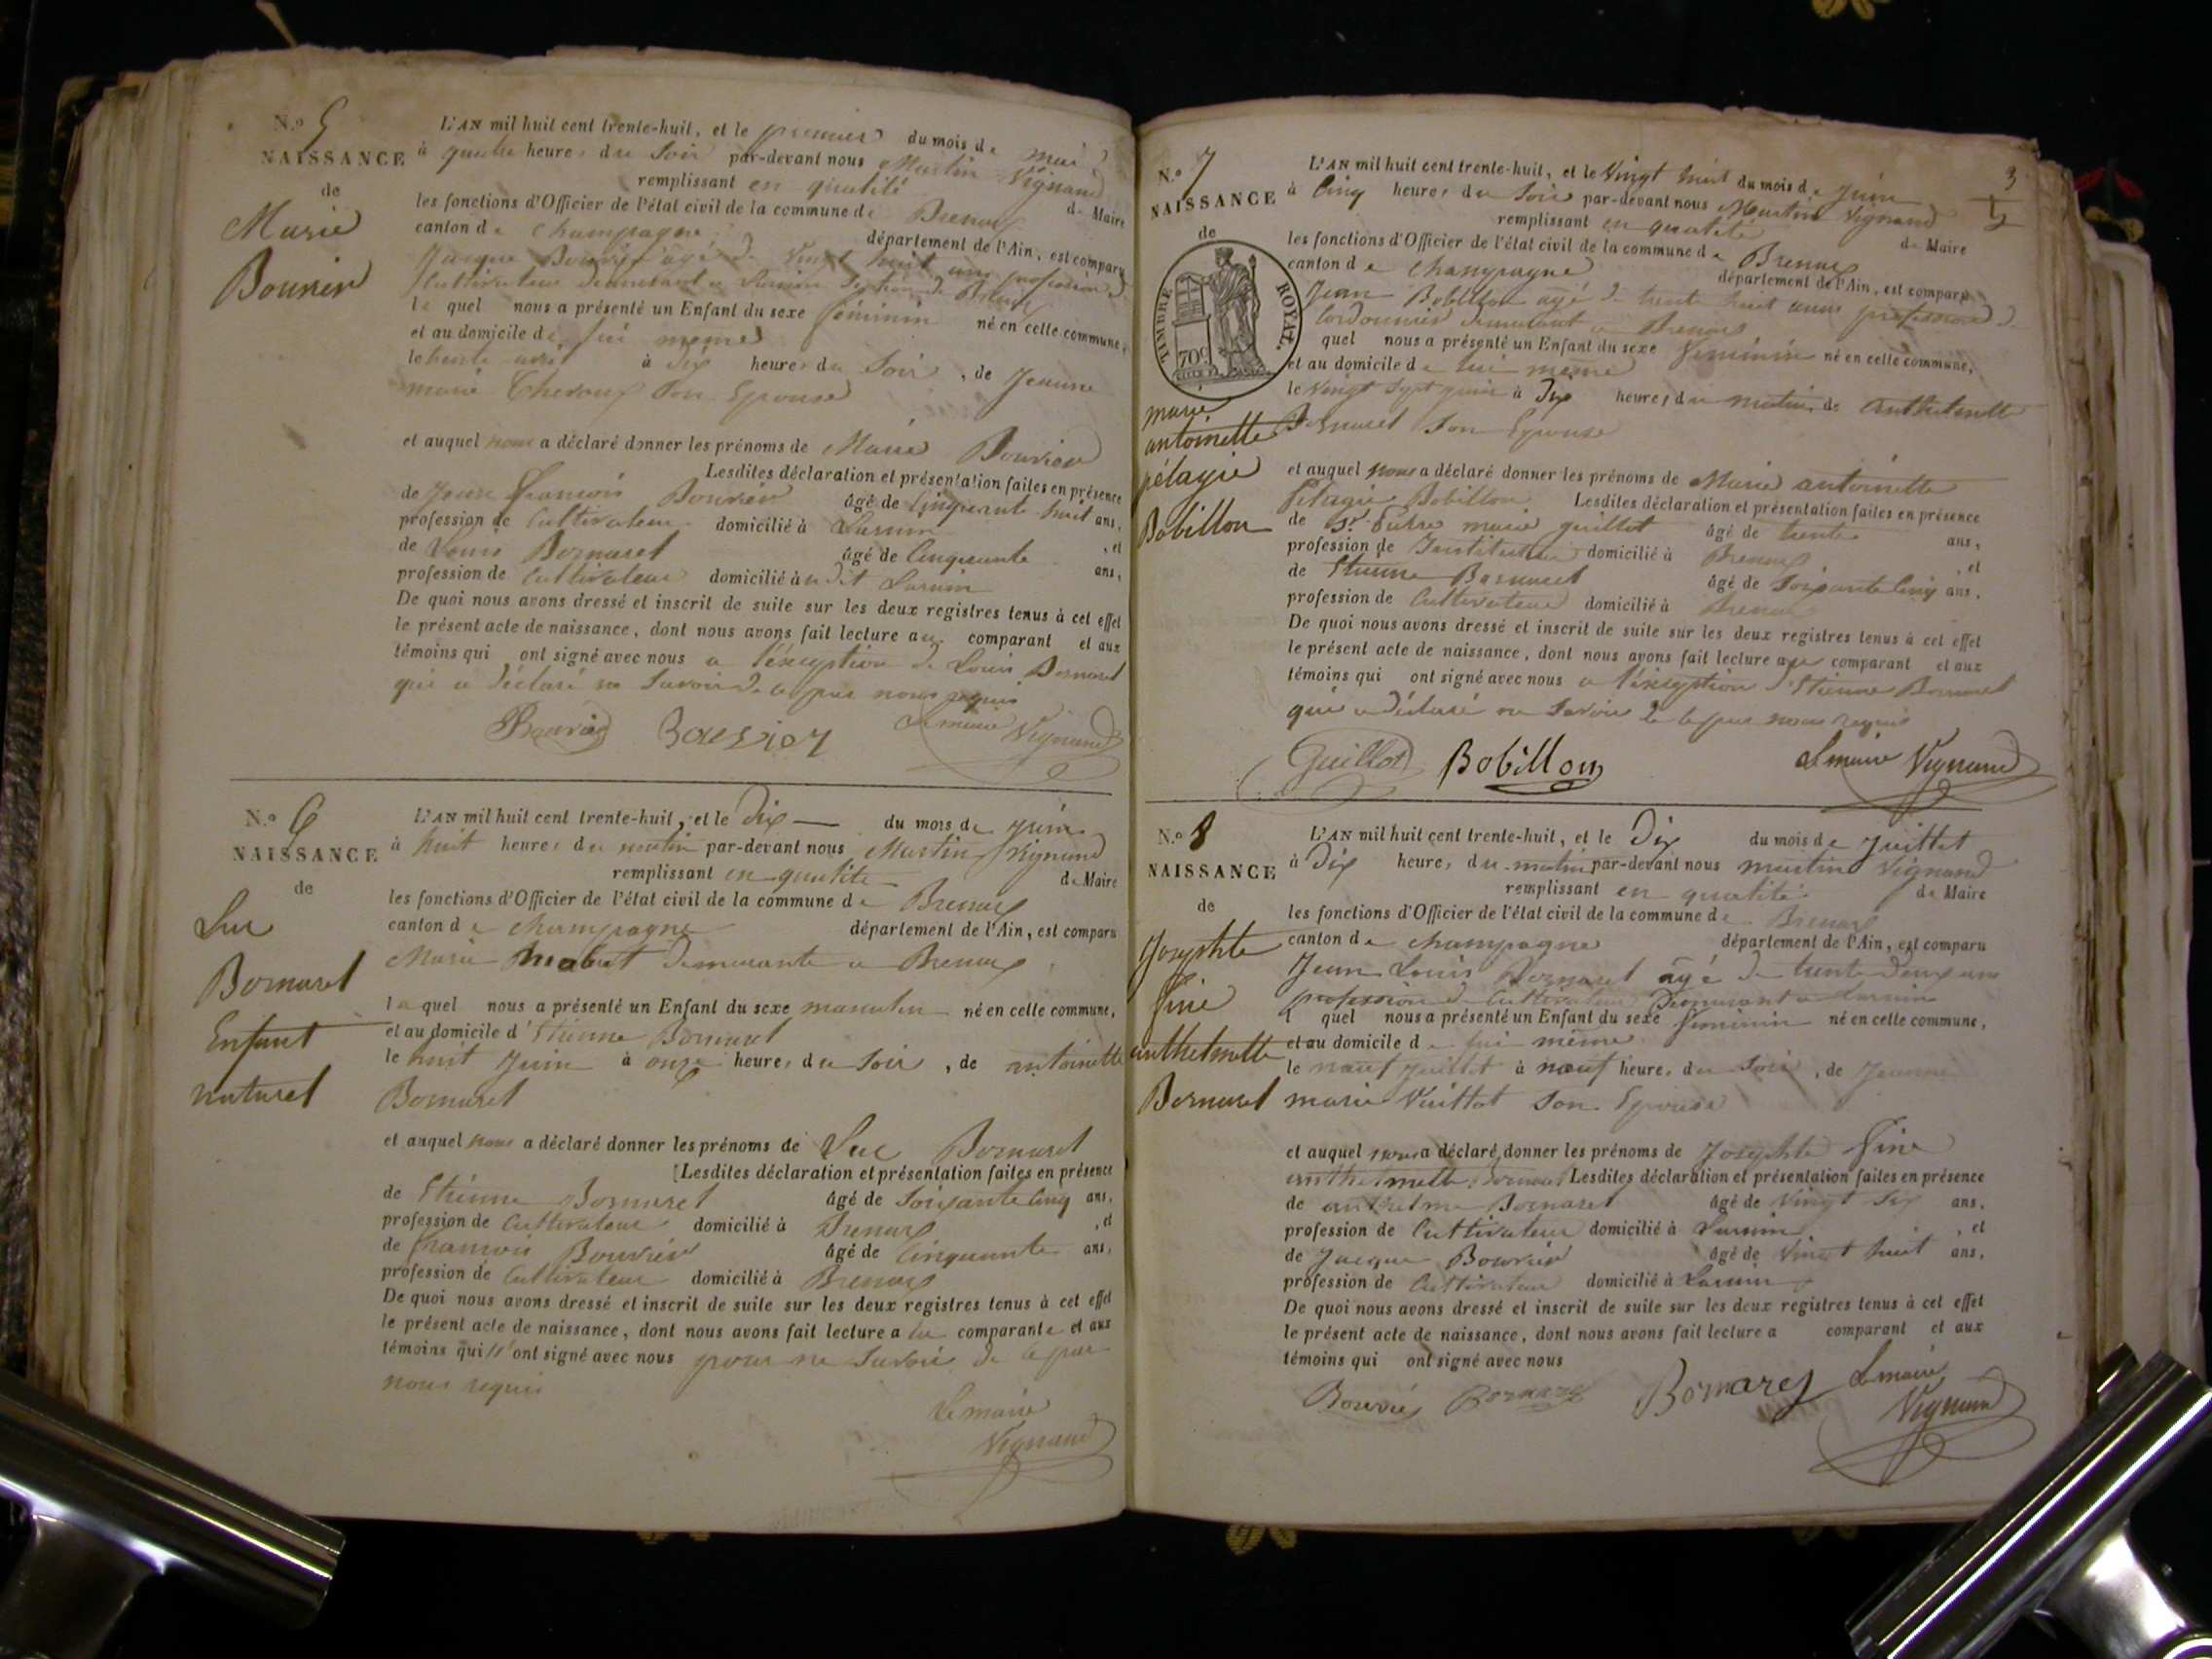 N.o 5
NAISSANCE
de
Marie
Bouvier
L'AN mil huit cent trente-huit, et le premier du mois de mai
à quatre heures du Soir par-devant nous Martin Vignand
remplissant en qualité de Maire
les fonctions d'Officier de l'état civil de la commune de Brenas
canton de Champagne département de l'Ain, est comparu
Jacque Bouvier agé de vingt huit ans profession de
Cultivateur demeurant a
le quel nous a présenté un Enfant du sexe féminin né en cette commune,
et au domicile de lui meme
le trente avril à dix heures du Soir, de Jeanne
marie Son Epouse
et auquel nous a déclaré donner les prénoms de Marie Bouvier
Lesdites déclaration et présentation faites en présence
de Jean francois Bouvier âgé de Cinquante huit ans,
profession de Cultivateur domicilié à , et
de Louis Bornaret âgé de Cinquante ans,
profession de Cultivateur domicilié à
De quoi nous avons dressé et inscrit de suite sur les deux registres tenus à cet effet
le présent acte de naissance, dont nous avons fait lecture au comparant et aux
témoins qui ont signé avec nous a l'éxeption de Louis Bornaret
qui a déclaré ne Savoir de ce par nous requis
Bouvier Bouvier Le maire Vignand
N.o 6
NAISSANCE
de
Luc
Bornaret
Enfant
naturel
L'AN mil huit cent trente-huit, et le Dix du mois de juin
à huit heures du matin par-devant nous Martin Vignand
remplissant en qualité de Maire
les fonctions d'Officier de l'état civil de la commune de Brenas
canton de Champagne département de l'Ain, est comparu
Marie demeurante a Brenas
la quel nous a présenté un Enfant du sexe masculin né en cette commune,
et au domicile d'Etienne Bornaret
le huit Juin à onze heures du Soir, de antoinette
Bornaret
et auquel nous a déclaré donner les prénoms de Luc Bornaret
Lesdites déclaration et présentation faites en présence
de Etienne Bornaret âgé de Soixante Cinq ans,
profession de Cultivateur domicilié à Brenas, et
de francois Bouvier âgé de Cinquante ans,
profession de Cultivateur domicilié à Brenas
De quoi nous avons dressé et inscrit de suite sur les deux registres tenus à cet effet
le présent acte de naissance, dont nous avons fait lecture a la comparante et aux
témoins qui n'ont signé avec nous pour ne Savoir de ce par
nous requis
Le maire
Vignand
3
N.o 7
NAISSANCE
de
TIMBRE ROYAL.
70c
marie
antoinette
pélagie
Bobillon
L'AN mil huit cent trente-huit, et le Vingt huit du mois de Juin
à Cinq heures du Soir par-devant nous Martin Vignand
remplissant en qualité de Maire
les fonctions d'Officier de l'état civil de la commune de Brenas
canton de Champagne département de l'Ain, est comparu
Jean Bobillon agé de trente huit ans profession de
Cordonnier demeurant a Brenas
quel nous a présenté un Enfant du sexe féminin né en cette commune,
et au domicile de lui même
le Vingt Sept juin à Dix heures du matin, de anthelmette
Bornaret Son Epouse
et auquel nous a déclaré donner les prénoms de Marie antoinette
Pélagie Bobillon Lesdites déclaration et présentation faites en présence
de Sr. marie guillot âgé de trente ans,
profession de Instituteur domicilié à Brenas, et
de Etienne Bornaret âgé de Soixante Cinq ans,
profession de Cultivateur domicilié à Brenas
De quoi nous avons dressé et inscrit de suite sur les deux registres tenus à cet effet
le présent acte de naissance, dont nous avons fait lecture au comparant et aux
témoins qui ont signé avec nous a l'éxeption d'Etienne Bornaret
qui a déclaré ne Savoir de ce par nous requis
Guillot Bobillon Le maire Vignand
N.o 8
NAISSANCE
de
Josephte
fine
anthelmette
Bornaret
L'AN mil huit cent trente-huit, et le Dix du mois de Juillet
à Dix heures du matin par-devant nous martin Vignand
remplissant en qualité de Maire
les fonctions d'Officier de l'état civil de la commune de Brenas
canton de Champagne département de l'Ain, est comparu
Jean Louis Bornaret agé de trente deux ans
profession de Cultivateur Demeurant a
quel nous a présenté un Enfant du sexe féminin né en cette commune,
et au domicile de lui même
le neuf Juillet à neuf heures du Soir, de Jeanne
marie Vuillot Son Epouse
et auquel nous a déclaré donner les prénoms de Josephte fine
anthelmette Bornaret Lesdites déclaration et présentation faites en présence
de anthelme Bornaret âgé de Vingt Six ans,
profession de Cultivateur domicilié à , et
de Jacque Bouvier âgé de Vingt huit ans,
profession de Cultivateur domicilié à
De quoi nous avons dressé et inscrit de suite sur les deux registres tenus à cet effet
le présent acte de naissance, dont nous avons fait lecture a comparant et aux
témoins qui ont signé avec nous
Bouvier Bornaret Bornaret Le maire
Vignand